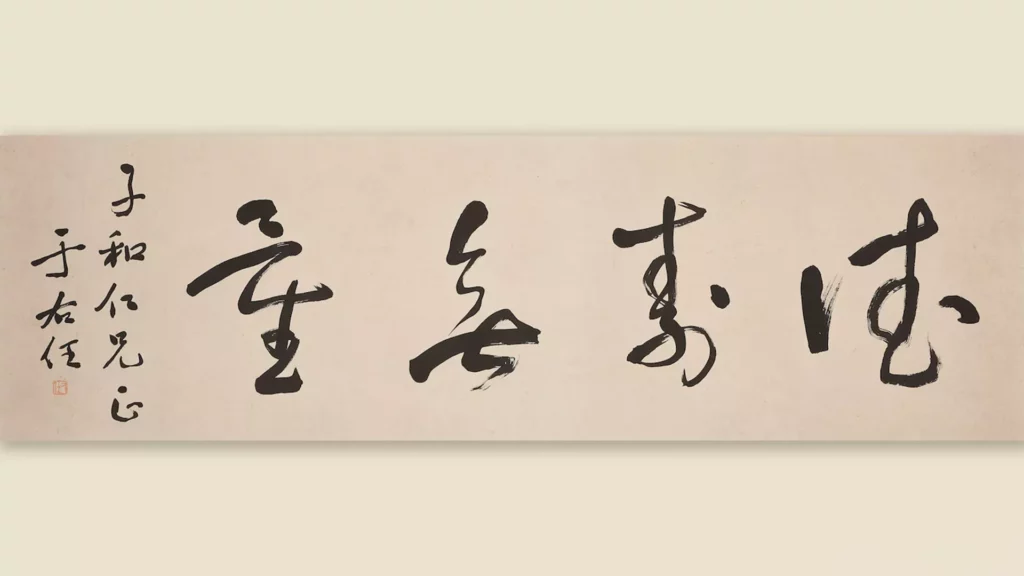 德壽無量
子和仁兄正
于右任